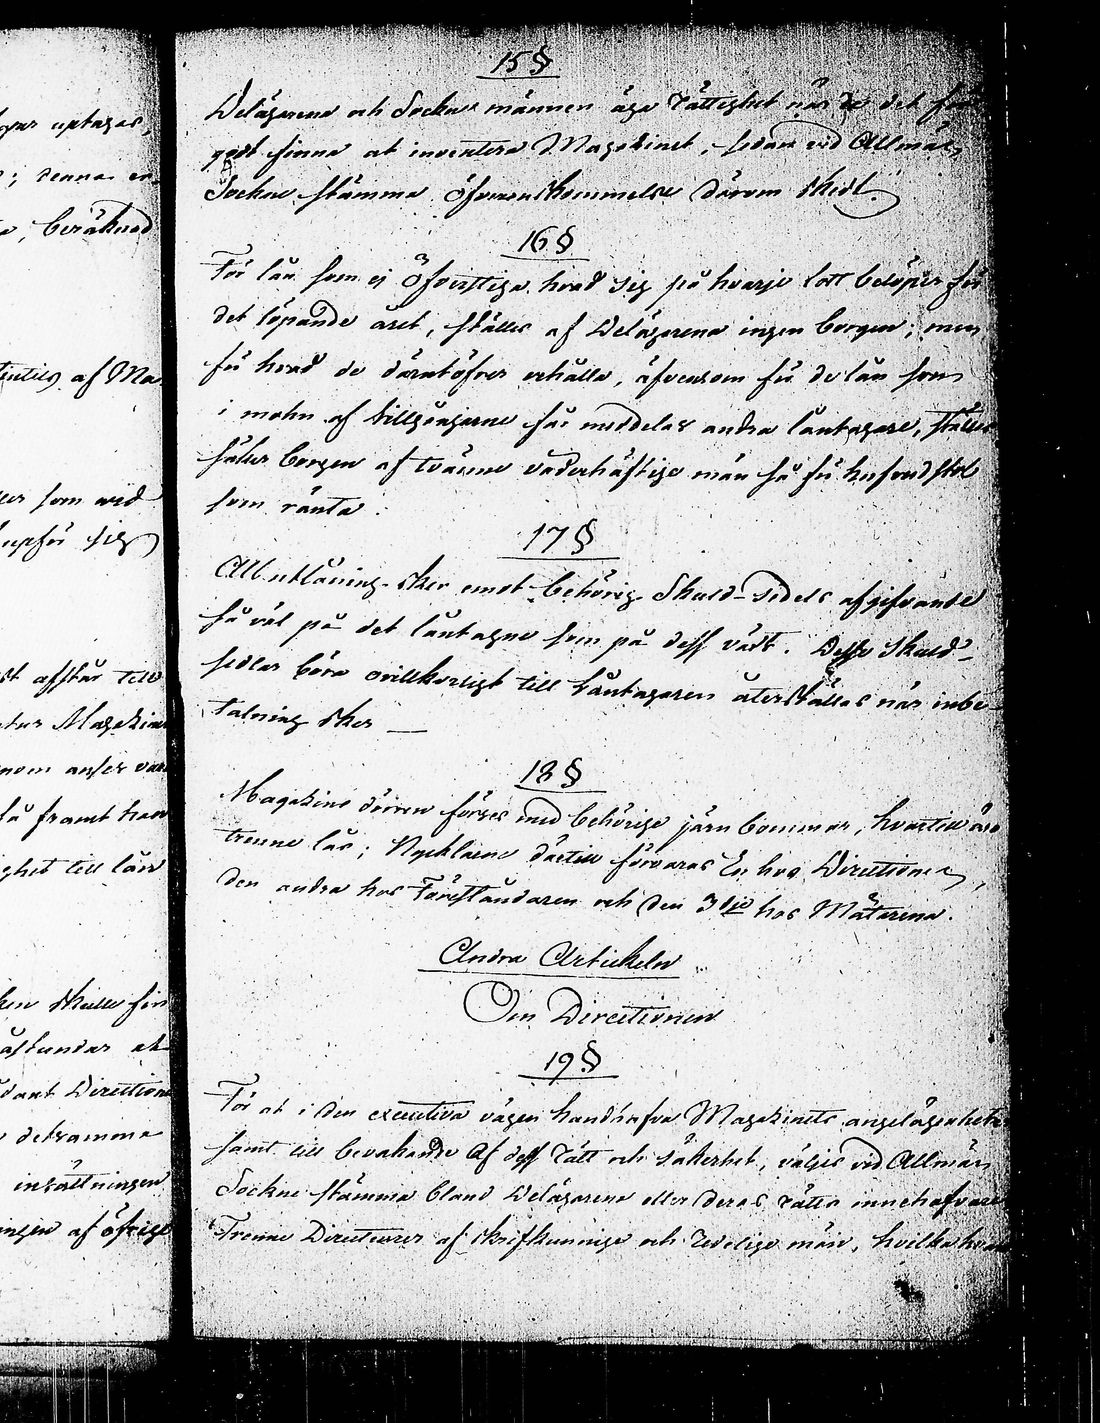 ogar uptages,
; denna er-
beräknad
af Ma-
som wid
upför sig
afstår till
Magazin
anser
så framt han
ghet till lån
skulle
åstundar at
Direction
detsamma
insättningen
af öfrige
15 §
Delägarena och Sockne männen äga rättighet när de det för
godt finna at inventera Magazinet, sedan vid Allmän
Sockne stämma öfverenskommelse därom skedt.
16 §
För lån som ej öfverstiga hvad sig på hvarje lott belöper för
det löpande året, ställes af Delägarena ingen borgen; men
för hvad de därutöfver erhålla, äfvensom för de lån som
i mohn af tillgångarne får meddelas andra låntagare, ställes
säker borgen af tvänne vederhäftige män så för hufvudstol
som ränta.
17 §
All utlåning sker emot behörig Skuld-sedels afgifvande
så väl på det låntagne som på dess växt. Desse Skuld-
sedlar böra ovillkorligt till Låntagaren återställas när inbe-
talning sker —
18 §
Magazins dörren förses med behörige järn bommar, hvartill äro
trenne lås; Nycklarne därtill förvaras En hos Directionen,
den andra hos Föreståndaren och den 3dje hos Mätarena.
Andra Artickeln
Om Directionen
19 §
För at i den executiva vägen handhafva Magazinets angelägenheter
samt till bevakande af dess rätt och säkerhet, väljes vid Allmän
Sockne stämma bland Delägarena eller deras rätts innehafvare
Trenne Directeurer af skrifkunnige och redelige män, hvilka